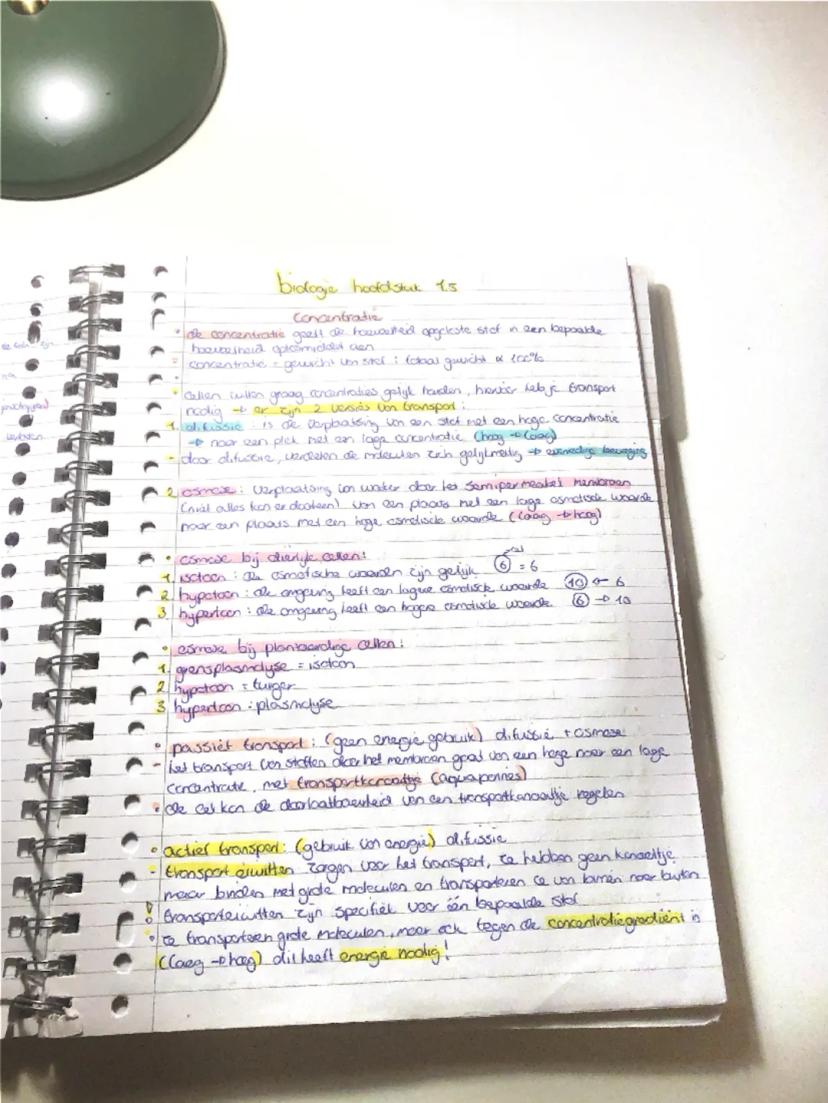 biologie hoofdstuk 1.5
concentratie
• de concentratie geeft de hoeveelheid opgeloste stof in een bepaalde
hoeveelheid oplosmiddel aan
- concentratie = gewicht van stof : totaal gewicht x 100%
• cellen willen graag concentraties gelijk houden, hiervoor heb je transport
nodig → er zijn 2 versies van transport:
1. difussie : is de verplaatsing van een stof met een hoge concentratie
→ naar een plek met een lage concentratie (hoog → laag)
- door difussie, verdelen de moleculen zich gelijkmatig → evenredige beweging
2 osmose : verplaatsing van water door het semipermeabel membraan
(niet alles kan er doorheen) van een plaats met een lage osmotische waarde
naar een plaats met een hoge osmotische waarde (laag → hoog)
• osmose bij dierlijke cellen:
cel
1 isotoon : de osmotische waarden zijn gelijk 6 = 6
2 hypotoon : de omgeving heeft een lagere osmotische waarde 10 ← 6
3 hypertoon : de omgeving heeft een hogere osmotische waarde 6 → 10
• osmose bij plantaardige cellen:
1 grensplasmolyse = isotoon
2 hypotoon = turgor
3 hypertoon : plasmolyse
• passief transport : (geen energie gebruik) difussie + osmose
- het transport van stoffen door het membraan gaat van een hoge naar een lage
concentratie, met transportkanaaltje (aquaporines)
• de cel kan de doorlaatbaarheid van een transportkanaaltje regelen
• actief transport : (gebruik van energie) difussie
- transport eiwitten zorgen voor het transport, ze hebben geen kanaaltje
maar binden met grote moleculen en transporteren ze van binnen naar buiten
! transporteiwitten zijn specifiek voor één bepaalde stof
• ze transporteren grote moleculen, maar ook tegen de concentratiegradiënt in
(laag → hoog) dit heeft energie nodig!